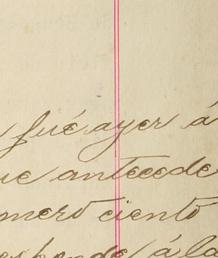 fué ayer á
ue antecede
mero ciento
esponde á la